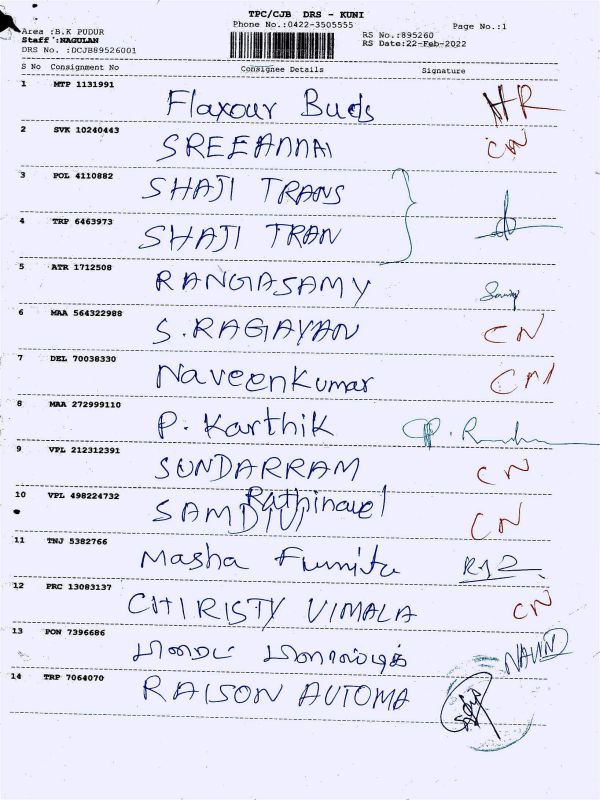 TPC/CJB DRS - KUNI
Phone No.:0422-3505555
Page No.:1
Area :B.K PUDUR
Staff :NAGULAN
DRS No. :DCJB89526001
RS No.:895260
RS Date:22-Feb-2022
S No Consignment No Consignee Details Signature
1 MTP 1131991 Flavour Buds HR
2 SVK 10240443 SREEANNAI CN
3 POL 4110882 SHAJI TRANS
4 TRP 6463973 SHAJI TRAN
5 ATR 1712508 RANGASAMY
6 MAA 564322988 S.RAGAVAN CN
7 DEL 70038330 Naveenkumar CN
8 MAA 272999110 P. Karthik
9 VPL 212312391 SUNDARRAM CN
10 VPL 498224732 Rathinavel CN
11 TNJ 5382766 Masha Furnitu
12 PRC 13083137 CHIRISTY VIMALA CN
13 PON 7396686
14 TRP 7064070 RAISON AUTOMA